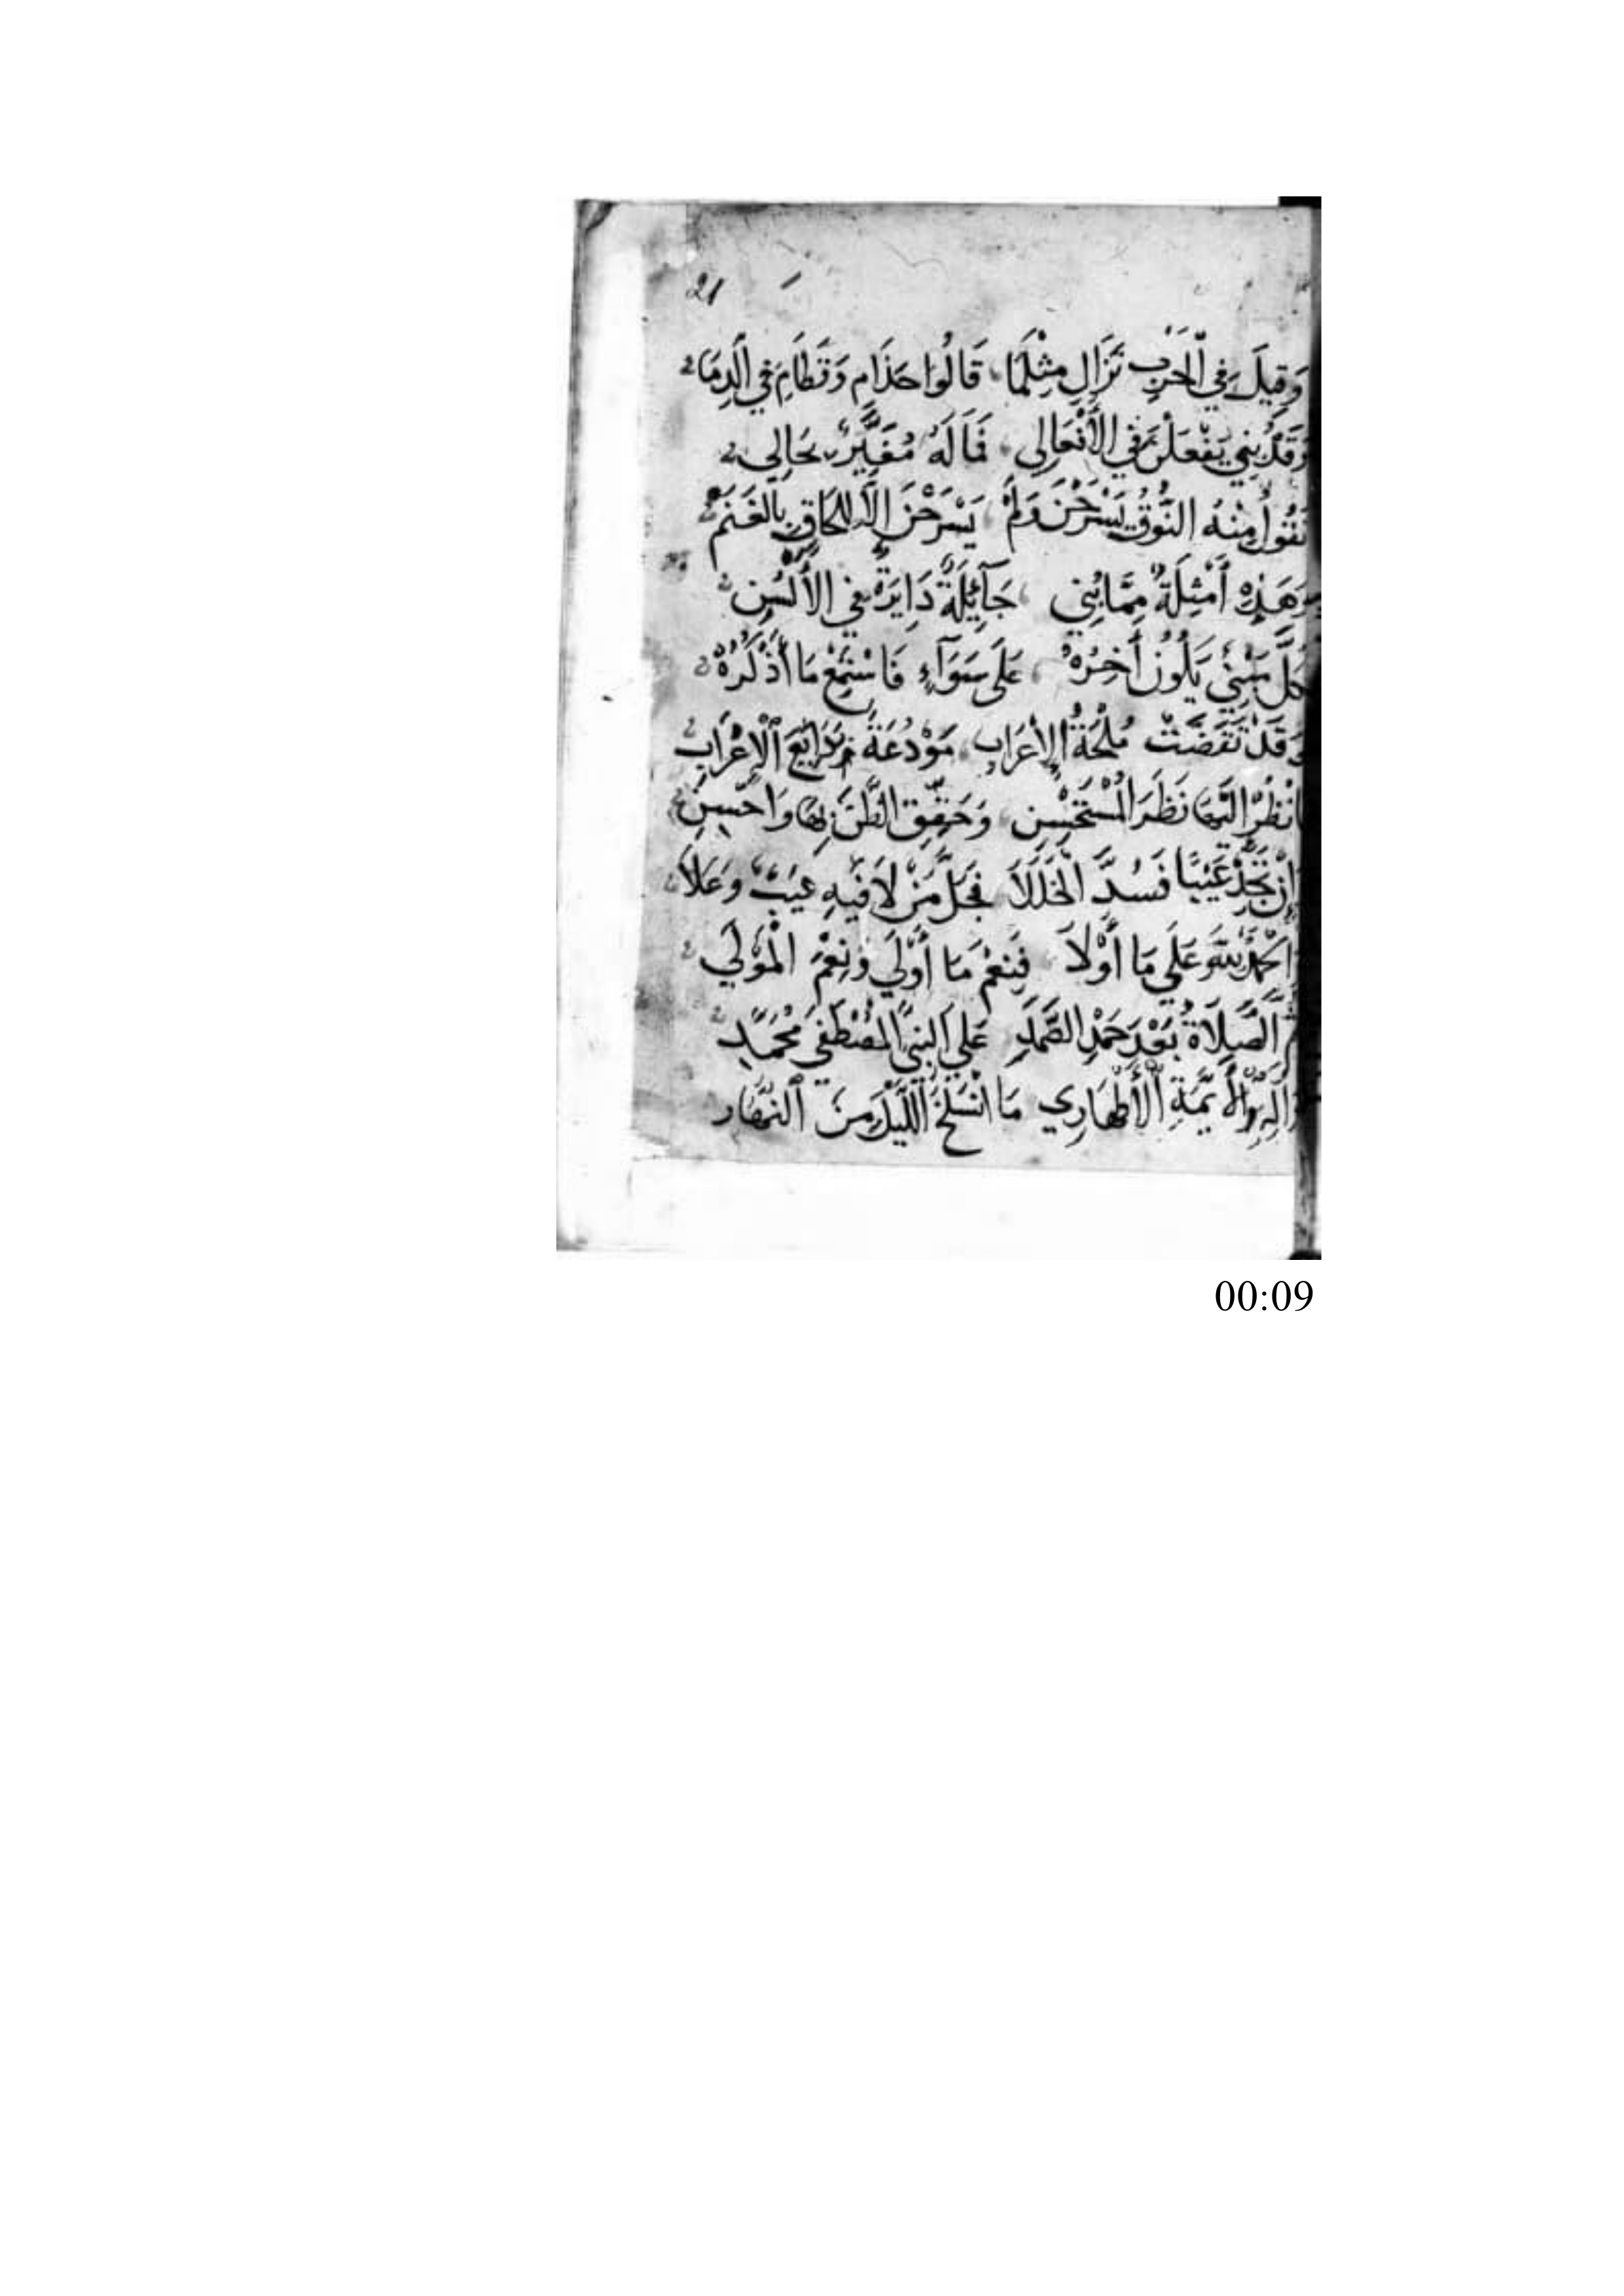 21
وَقِيلَ فِي الْحَرْبِ نَزَالِ مِثْلَمَا قَالُوا حَذَامِ وَقَطَامِ فِي الدِمَا
وَقَدْ بُنِي يَفْعَلْنَ فِي الأَفْعَالِي فَمَا لَهُ مُغَيِّرٌ بِحَالِي
تَقُولُ مِنْهُ النُّوقُ يَسْرَحْنَ وَلَمْ يَسْرَحْنَ إِلَّا لِلَّحَاقِ بِالْغَنَمْ
وَهَذِهِ أَمْثِلَةٌ مِمَّا بُنِي جَآئِلَةٌ دَايِرَةٌ فِي الأَلْسُنِ
كُلُّ مَبْنِي يَكُونُ أَخِرُهْ عَلَى سَوَآءٍ فَاسْتَمِعْ مَا أَذْكُرُهْ
وَقَدْ تَقَضَّتْ مُلْحَةُ الإِعْرَابِ مَوْدُعَةً مِنْ بَدَايِعِ الْإِعْرَابِ
فَانْظُرْ الَيْهَا نَظَرَ الْمُسْتَحْسِنِ وَحَقِّقِ الظَّنَّ بِهَا وَاحْسِنِ
وَإِنْ تَجِدْ عَيْبًا فَسُدَّ الْخَلَلَا فَجَلَّ مَنْ لَا فِيهِ عَيْبٌ وَعَلَا
وَالْحَمْدُ لِلَّهِ عَلَي مَا أَوْلَا فَنِعْمَ مَا أَوْلَي وَنِعْمَ الْمَوْلَي
ثُمَّ الصَّلَاةُ بَعْدَ حَمْدِ الصَّمَدِ عَلَي النَبِيِّ الْمُصْطَفَي مُحَمَّدٍ
وَآلِهِ وَالْأَيِمَّةِ الْأَطْهَارِي مَا انْسَلَخَ اللَّيْلُ مِنَ النَّهَار
00:09